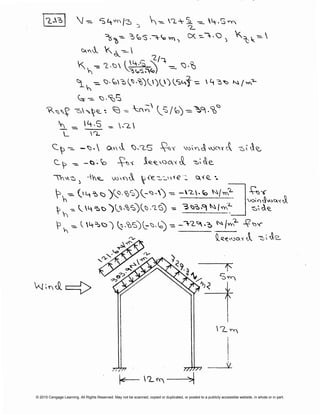 2.13 V = 54 m/3 , h = 12 + 5/2 = 14.5 m
zg = 365.76 m, α = 7.0, Kzt = 1
and Kd = 1
Kh = 2.01 (14.5/365.76)^2/7 = 0.8
qh = 0.613(0.8)(1)(1)(54)² = 1430 N/m²
G = 0.85
Roof slope: θ = tan⁻¹(5/6) = 39.8°
h/L = 14.5/12 = 1.21
Cp = -0.1 and 0.25 for windward side
Cp = -0.6 for leeward side
Thus, the wind pressure; are:
Ph = (1430)(0.85)(-0.1) = -121.6 N/m²
Ph = (1430)(0.85)(0.25) = 303.9 N/m²
for windward side
Ph = (1430)(0.85)(-0.6) = -729.3 N/m² for leeward side
121.6 N/m²
303.9 N/m²
729.3 N/m²
Wind
5m
12 m
12 m
© 2015 Cengage Learning. All Rights Reserved. May not be scanned, copied or duplicated, or posted to a publicly accessible website, in whole or in part.